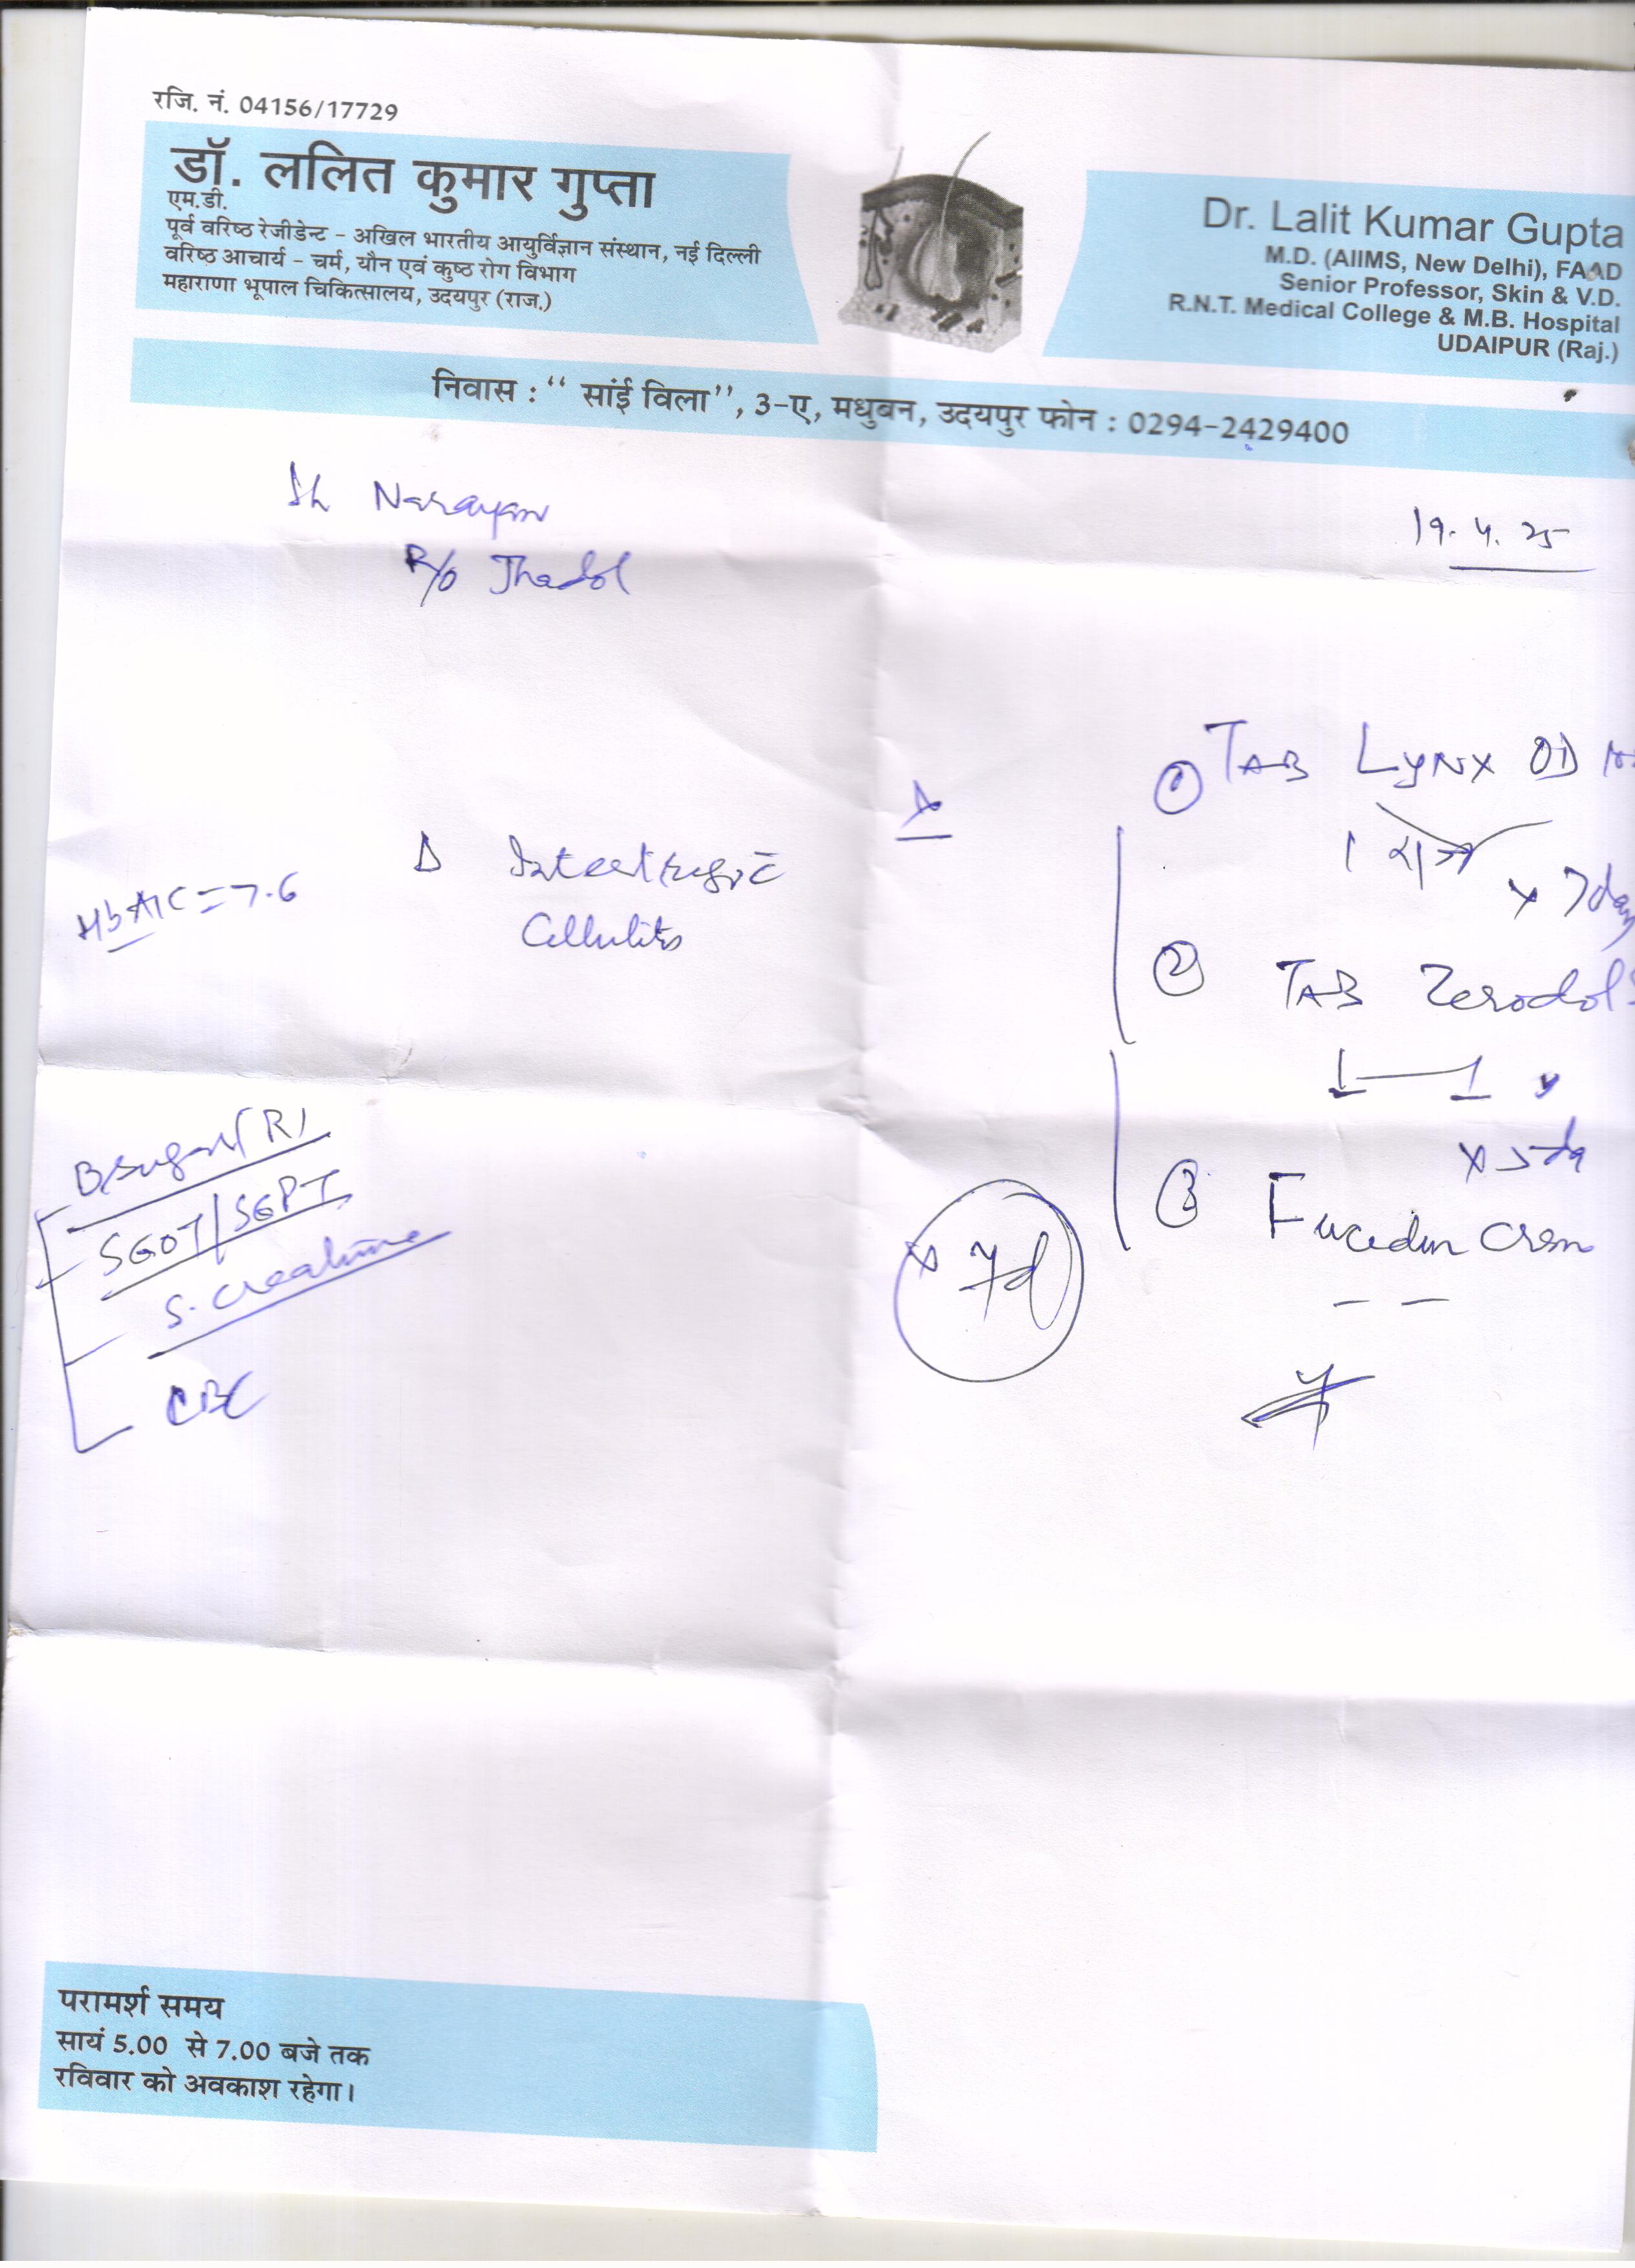 रजि. नं. 04156/17729
डॉ. ललित कुमार गुप्ता
एम.डी.
पूर्व वरिष्ठ रेजीडेन्ट - अखिल भारतीय आयुर्विज्ञान संस्थान, नई दिल्ली
वरिष्ठ आचार्य - चर्म, यौन एवं कुष्ठ रोग विभाग
महाराणा भूपाल चिकित्सालय, उदयपुर (राज.)
Dr. Lalit Kumar Gupta
M.D. (AIIMS, New Delhi), FAAD
Senior Professor, Skin & V.D.
R.N.T. Medical College & M.B. Hospital
UDAIPUR (Raj.)
निवास : “ सांई विला”, 3-ए, मधुबन, उदयपुर फोन : 0294-2429400
Sh Narayan
R/o Jhadol
19.4.25
HbA1C = 7.6
Δ Intertrigo c̄
Cellulitis
B/sugar (R)
SGOT/SGPT
S. Creatinine
CBC
① TAB LYNX OD
1 रात्रि
x 7 day
② TAB Zerodol
1 — 1
x 5 da
③ Fucedin Crem
x 7d
परामर्श समय
सायं 5.00 से 7.00 बजे तक
रविवार को अवकाश रहेगा।